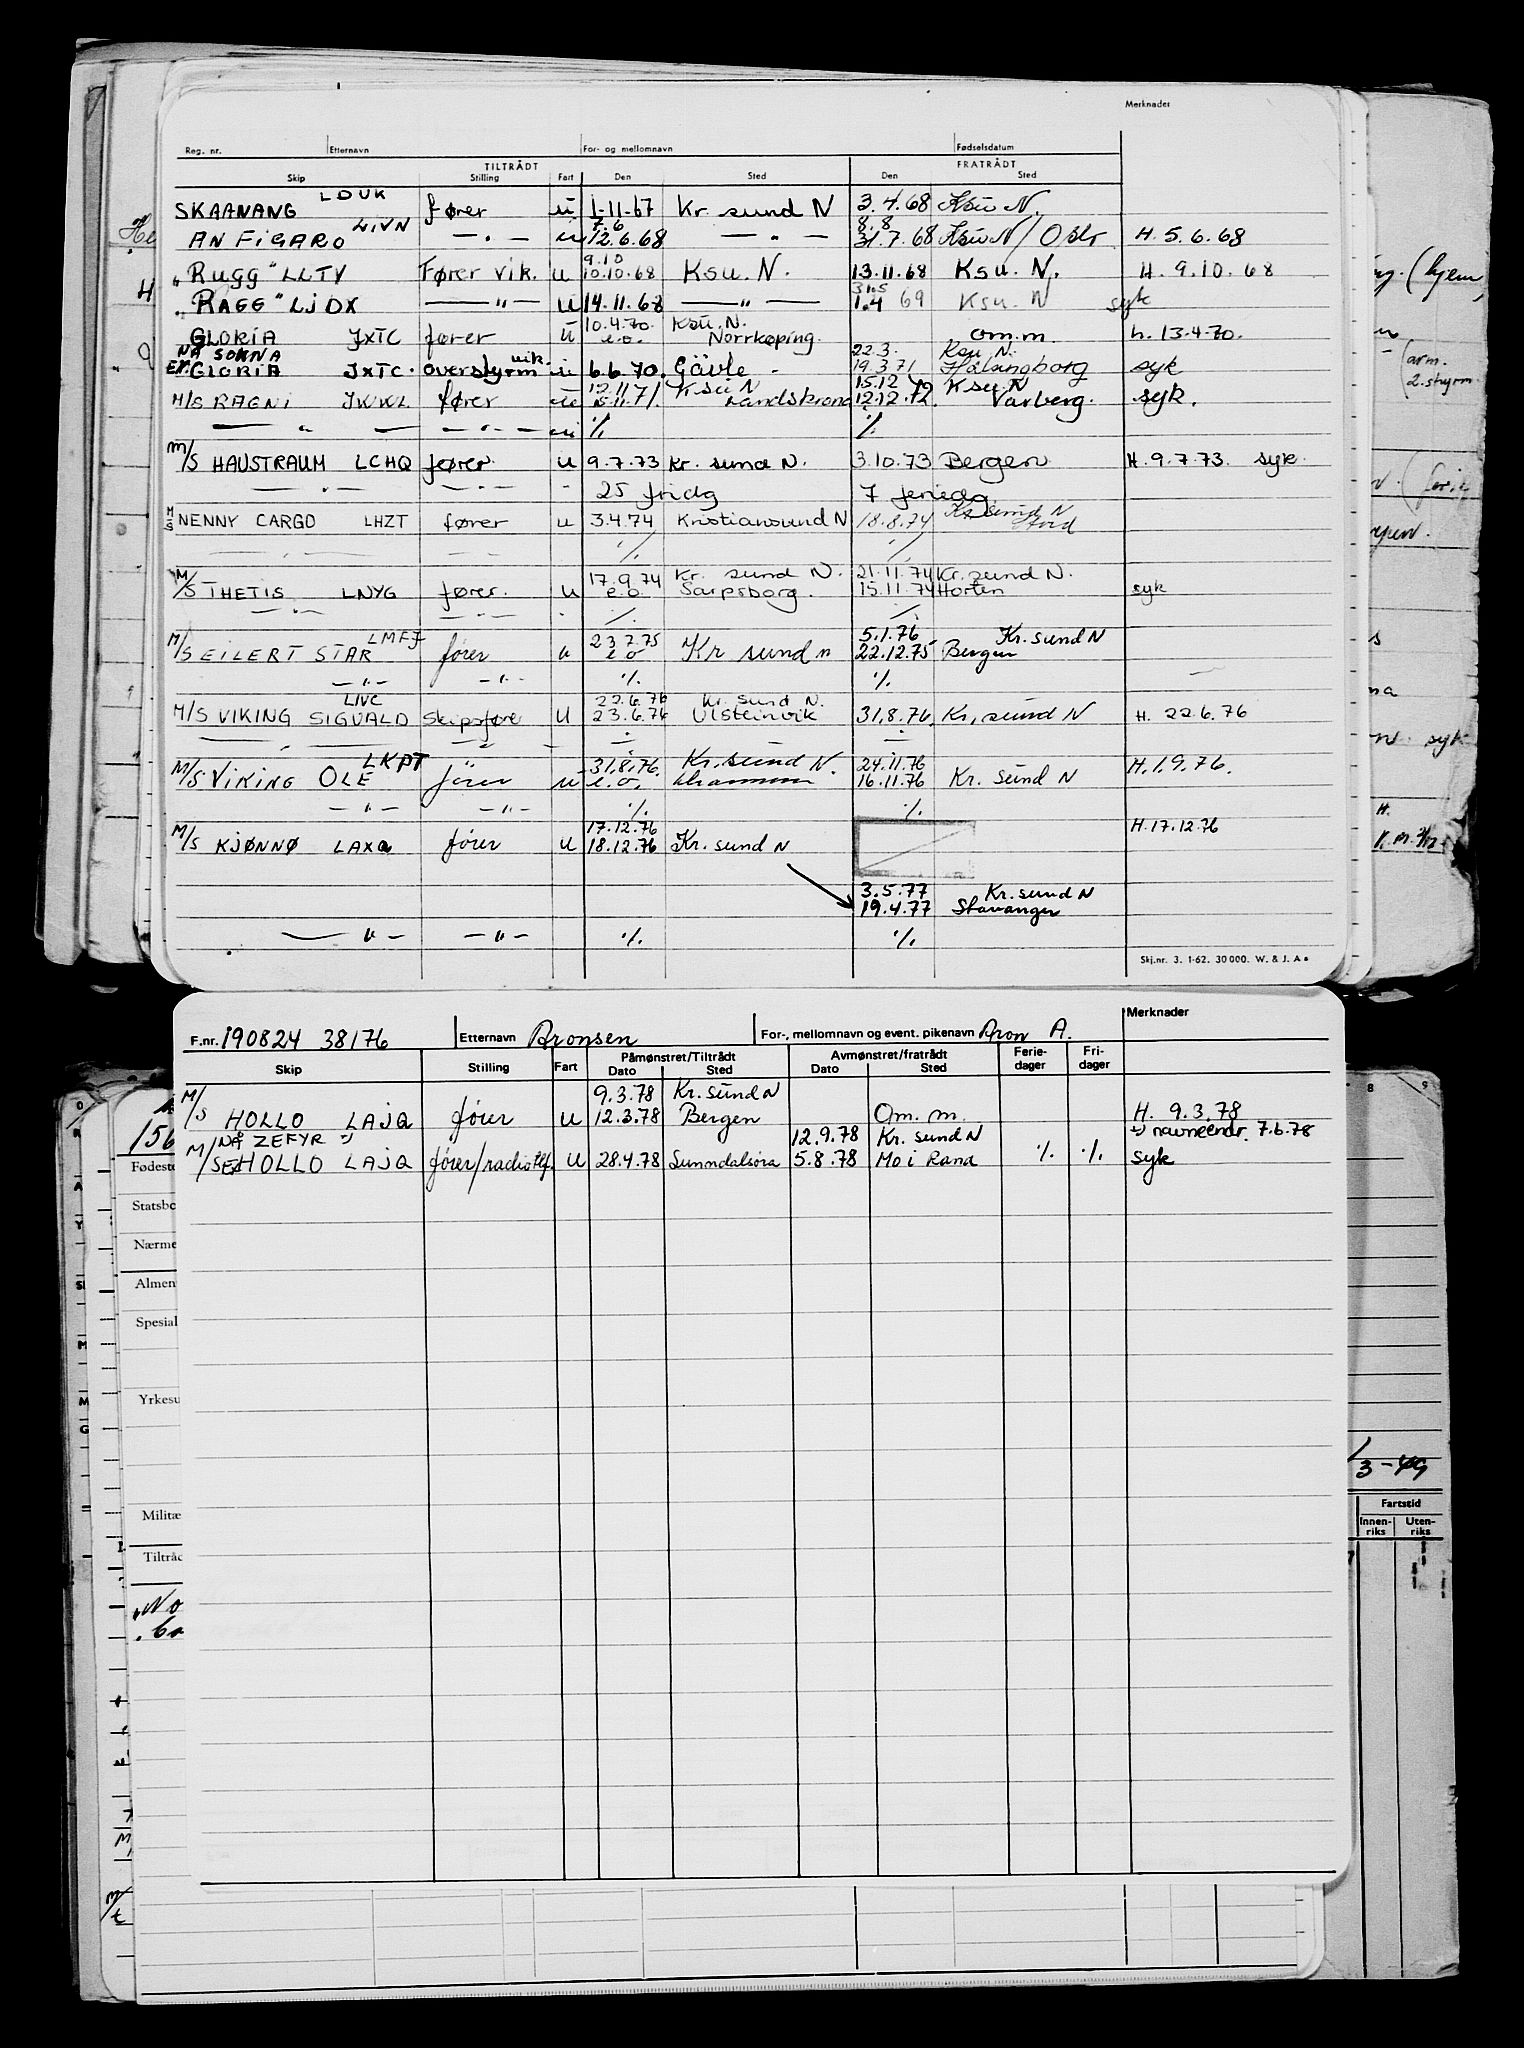 Merknader
Reg. nr. Etternavn For- og mellomnavn Fødselsdatum
TILTRÅDT FRATRÅDT
Skip Stilling Fart Den Sted Den Sted
LDUK
SKAANANG fører u 1-11-67 Kr. sund N 3.4.68 Ksu N.
LIVN 7.6 8.8
AN FIGARO — " — u 12.6.68 — " — 31.7.68 Ksu N/ Oslo H. 5.6.68
9.10
"Rugg" LLTV Fører vik. u 10.10.68 Ksu. N. 13.11.68 Ksu. N. H. 9.10.68
31.5
"RAGG" LJDX — " — u 14.11.68 — " — 1.4 69 Ksu. N syk
10.4.70. Ksu. N.
GLORIA JXTC fører u e.o. Norrkøping. om.m h. 13.4.70.
NÅ SOKNA vik. 22.3. Ksu N.
EX. GLORIA JXTC. overstyrm u 6.6.70. Gävle - 19.3.71 Hälsingborg syk
12.11 Ksu N 15.12 72 Ksu. N
M/S RAGNI JWWL fører u 15.11.71. Landskrona 12.12.72. Varberg. syk.
— " — — " — u % %
M/S HAUSTRAUM LCHQ fører u 9.7.73 Kr. sund N. 3.10.73 Bergen H. 9.7.73. syk.
— " — — " — - 25 fridg 7 feriedg.
Kr. sund N
M/S NENNY CARGO LHZT fører u 3.4.74 Kristiansund N 18.8.74 Stord
— " — — " — % %
17.9.74 Kr. sund N. 21.11.74 Kr. sund N.
M/S THETIS LNYG fører. u e.o. Sarpsborg. 15.11.74 Horten syk
— " — — " — - % %
LMFJ 23.7.75 5.1.76 Kr. sund N
M/S EILERT STAR fører u e.o Kr sund n 22.12.75 Bergen
— " — — " — % %
LIVC 22.6.76 Kr. sund N.
M/S VIKING SIGVALD skipsfører U 23.6.76 Ulsteinvik 31.8.76. Kr. sund N H. 22.6.76
— " — — " — % %
LKPT 31.8.76. Kr. sund N. 24.11.76 H.1.9.76.
M/S VIKING OLE fører u e.o. 16.11.76 Kr. sund N
— " — — " — % %
17.12.76 H.17.12.76
M/S KJØNNØ LAXQ fører u 18.12.76 Kr. sund N
3.5.77 Kr. sund N
19.4.77 Stavanger
— " — — " — % %
Skj.nr. 3. 1-62. 30 000. W. & J. A.
Merknader
F.nr. 190824 38176 Etternavn Aronsen For-, mellomnavn og event. pikenavn Aron A.
Påmønstret/Tiltrådt Avmønstret/fratrådt Ferie- Fri-
Skip Stilling Fart Dato Sted Dato Sted dager dager
9.3.78 Kr. sund N
M/S HOLLO LAJQ fører u 12.3.78 Bergen Om. m. H. 9.3.78
NÅ ZEFYR 12.9.78 Kr. sund N navneendr. 7.6.78
M/S EX HOLLO LAJQ fører/radiotlf. U 28.4.78 Sunndalsøra 5.8.78 Mo i Rana % % syk
156
Fødeste
Statsbo
Nærme
Almen
Spesial
Yrkesu
Militæ
Tiltråd
"No
3-49
Fartstid
Innen-riks Uten-riks
(hjem
(arm.
2. styrm
syk
H.
8 9